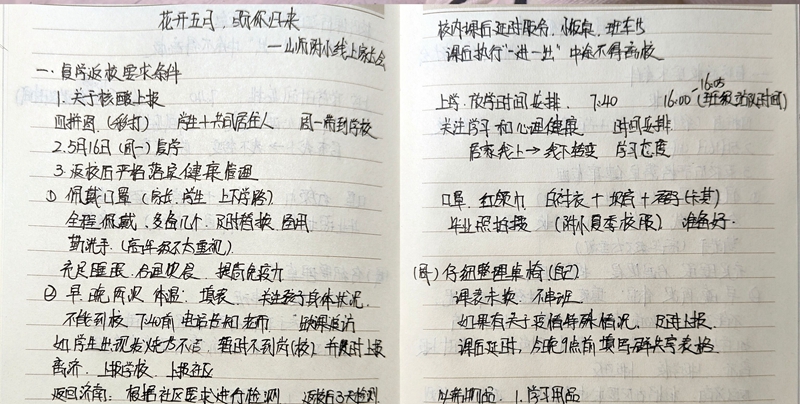 花开五月，助你归来
——山师附小线上家长会
一、复学返校要求条件
1. 关于核酸上报
四拼图 (彩打) 学生+共同居住人 周一带到学校
2. 5月16日 (周一) 复学
3. 返校后严格落实健康管理
① 佩戴口罩 (家长、学生 上下学路)
全程佩戴、多备几个、及时替换、备用
勤洗手 (高年级不太重视)
充足睡眠、合理饮食 提高免疫力
② 早、晚两次 体温：填表 关注孩子身体状况
不能到校 7:40前 电话告知老师 缺课追访
如学生出现发烧等不适，暂时不到岗(校) 并及时上报
离济，上报学校、上报社区
返回济南：根据社区要求进行检测 返校后3天检测
校内课后延时服务、小饭桌、班车
课后执行"一进一出" 中途不得离校
上学、放学时间安排 7:40 16:00-16:05 (班级放学时间)
关注学习和心理健康 时间安排
居家线上→线下转变 学习态度
口罩 红领巾 白衬衣+坎肩+裙子(长裤)
毕业照拍摄 (附小夏季校服) 准备好
(周) 仔细整理桌椅 (自己)
课表未教 不串班
如果有关于疫情特殊情况，及时上报
课后延时，今晚9点前填写研究表格
1. 学习用品